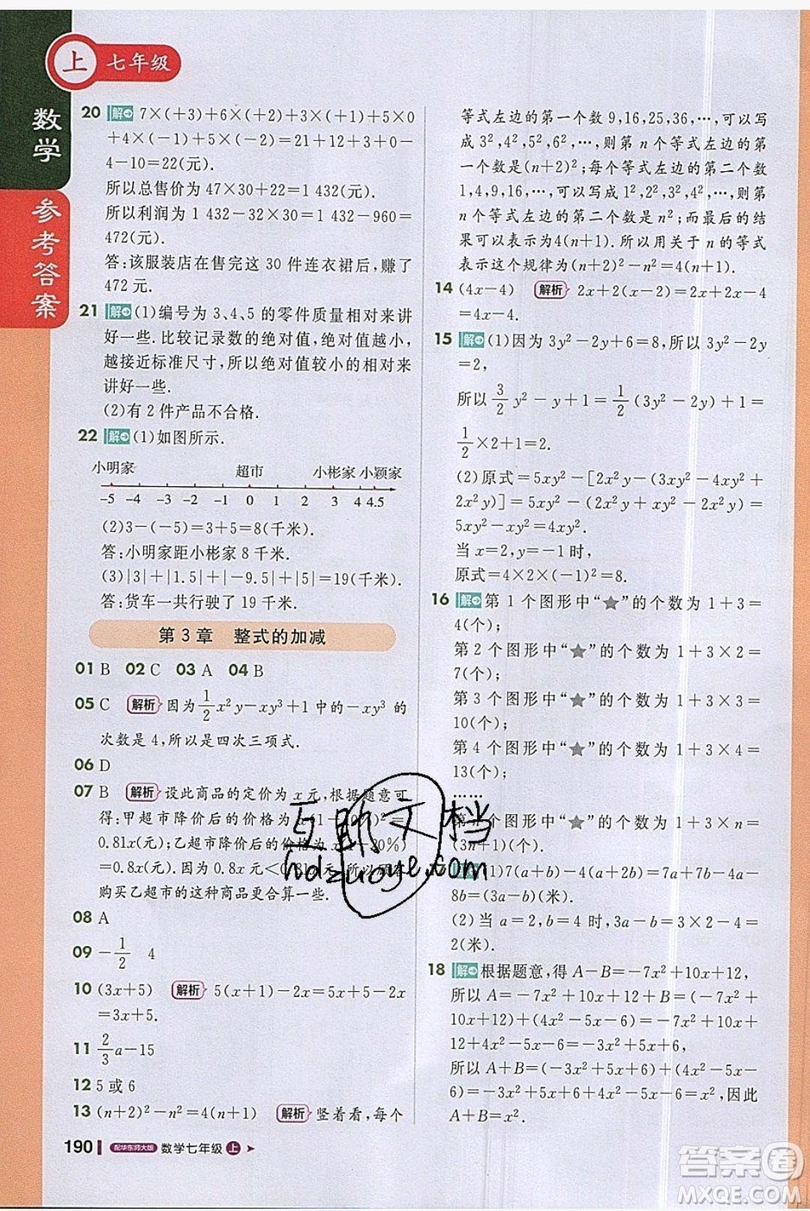 上 七年级
数学
参考答案
20 解 7×(+3)+6×(+2)+3×(+1)+5×0
+4×(-1)+5×(-2)=21+12+3+0-
4-10=22(元).
所以总售价为 47×30+22=1 432(元).
所以利润为 1 432-32×30=1 432-960=
472(元).
答:该服装店在售完这 30 件连衣裙后,赚了
472 元.
21 解 (1)编号为 3、4、5 的零件质量相对来讲
好一些.比较记录数的绝对值,绝对值越小,
越接近标准尺寸,所以绝对值较小的相对来讲
好一些.
(2)有 2 件产品不合格.
22 解 (1)如图所示.
小明家 超市 小彬家 小颖家
-5 -4 -3 -2 -1 0 1 2 3 4 4.5
(2)3-(-5)=3+5=8(千米).
答:小明家距小彬家 8 千米.
(3)|3|+|1.5|+|-9.5|+|5|=19(千米).
答:货车一共行驶了 19 千米.
第 3 章 整式的加减
01 B 02 C 03 A 04 B
05 C 解析 因为 1/2 x²y-xy³+1 中的-xy³ 的
次数是 4,所以是四次三项式.
06 D
07 B 解析 设此商品的定价为 x 元,根据题意可
得:甲超市降价后的价格为
0.81x(元);乙超市降价后的价格为
=0.8x(元).因为 0.8x 元<
购买乙超市的这种商品更合算一些.
08 A
09 -1/2 4
10 (3x+5) 解析 5(x+1)-2x=5x+5-2x
=3x+5.
11 2/3 a-15
12 5 或 6
13 (n+2)²-n²=4(n+1) 解析 竖着看,每个
等式左边的第一个数 9,16,25,36,…,可以写
成 3²,4²,5²,6²,…,则第 n 个等式左边的第
一个数是(n+2)²;每个等式左边的第二个数
1,4,9,16,…,可以写成 1²,2²,3²,4²,…,则第
n 个等式左边的第二个数是 n²;而最后的结
果可以表示成 4(n+1).所以用关于 n 的等式
表示这个规律为(n+2)²-n²=4(n+1).
14 (4x-4) 解析 2x+2(x-2)=2x+2x-4
=4x-4.
15 解 (1)因为 3y²-2y+6=8,所以 3y²-2y
=2,
所以 3/2 y²-y+1=1/2(3y²-2y)+1=
1/2×2+1=2.
(2)原式=5xy²-[2x²y-2x²y+xy²]=
5xy²-xy²=4xy².
当 x=2,y=-1时,
原式=4×2×(-1)²=8.
16 解 第 1 个图形中“★”的个数为 1+3=
4(个);
第 2 个图形中“★”的个数为 1+3×2=
7(个);
第 3 个图形中“★”的个数为 1+3×3=
10(个);
第 4 个图形中“★”的个数为 1+3×4=
13(个);
……
第 n 个图形中“★”的个数为 1+3×n=
(3n+1)(个).
(1)7(a+b)-4(a+2b)=7a+7b-4a-
8b=(3a-b)(米).
(2)当 a=2,b=4 时,3a-b=3×2-4=
2(米).
18 解 根据题意,得 A-B=-7x²+10x+12,
所以 A=-7x²+10x+12+B=-7x²+10x
+12+4x²-5x-6=-3x²+5x+6,
所以 A+B=(-3x²+5x+6)+
(4x²-5x-6)=-3x²+5x+6+4x²-5x-6
=x².
互助文档
hdzuoye.com
190 配华东师大版 数学七年级 上
答案圈
MXQE.COM